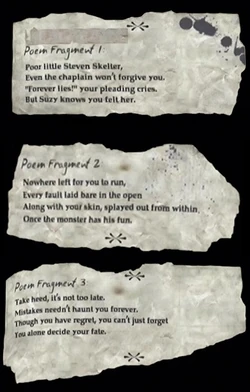 Poem Fragment 1
Poor little Steven Skelter,
Even the chaplain won't forgive you.
"Forever lies!" your pleading cries.
But Suzy knows you felt her.
Poem Fragment 2
Nowhere left for you to run,
Every fault laid bare in the open
Along with your skin, splayed out from within
Once the monster has his fun.
Poem Fragment 3
Take heed, it's not too late.
Mistakes needn't haunt you forever.
Though you have regret, you can't just forget
You alone decide your fate.